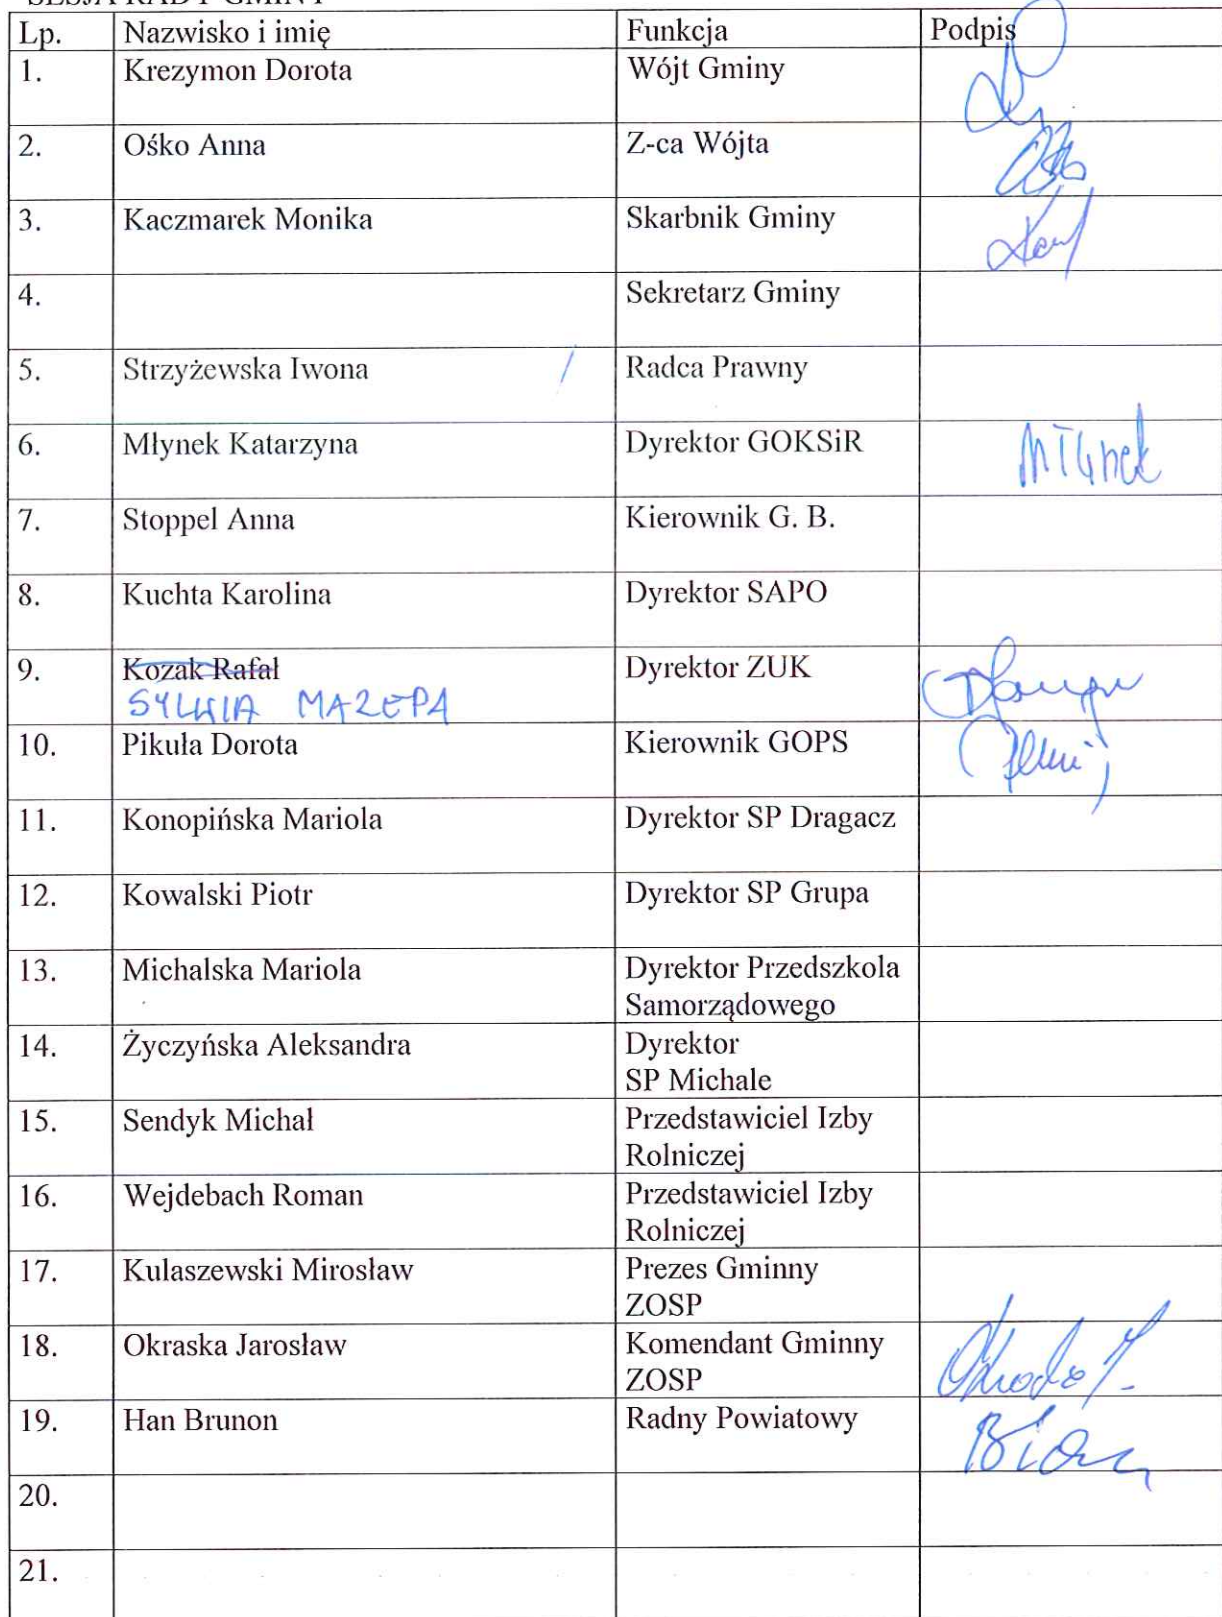 SESJA RADY GMINY
Lp. Nazwisko i imię Funkcja Podpis
1. Krezymon Dorota Wójt Gminy
2. Ośko Anna Z-ca Wójta
3. Kaczmarek Monika Skarbnik Gminy
4. Sekretarz Gminy
5. Strzyżewska Iwona Radca Prawny
6. Młynek Katarzyna Dyrektor GOKSiR Młynek
7. Stoppel Anna Kierownik G. B.
8. Kuchta Karolina Dyrektor SAPO
9. Kozak Rafał Dyrektor ZUK
SYLWIA MAZEPA
10. Pikuła Dorota Kierownik GOPS
11. Konopińska Mariola Dyrektor SP Dragacz
12. Kowalski Piotr Dyrektor SP Grupa
13. Michalska Mariola Dyrektor Przedszkola
Samorządowego
14. Życzyńska Aleksandra Dyrektor
SP Michale
15. Sendyk Michał Przedstawiciel Izby
Rolniczej
16. Wejdebach Roman Przedstawiciel Izby
Rolniczej
17. Kulaszewski Mirosław Prezes Gminny
ZOSP
18. Okraska Jarosław Komendant Gminny
ZOSP
19. Han Brunon Radny Powiatowy
20.
21.